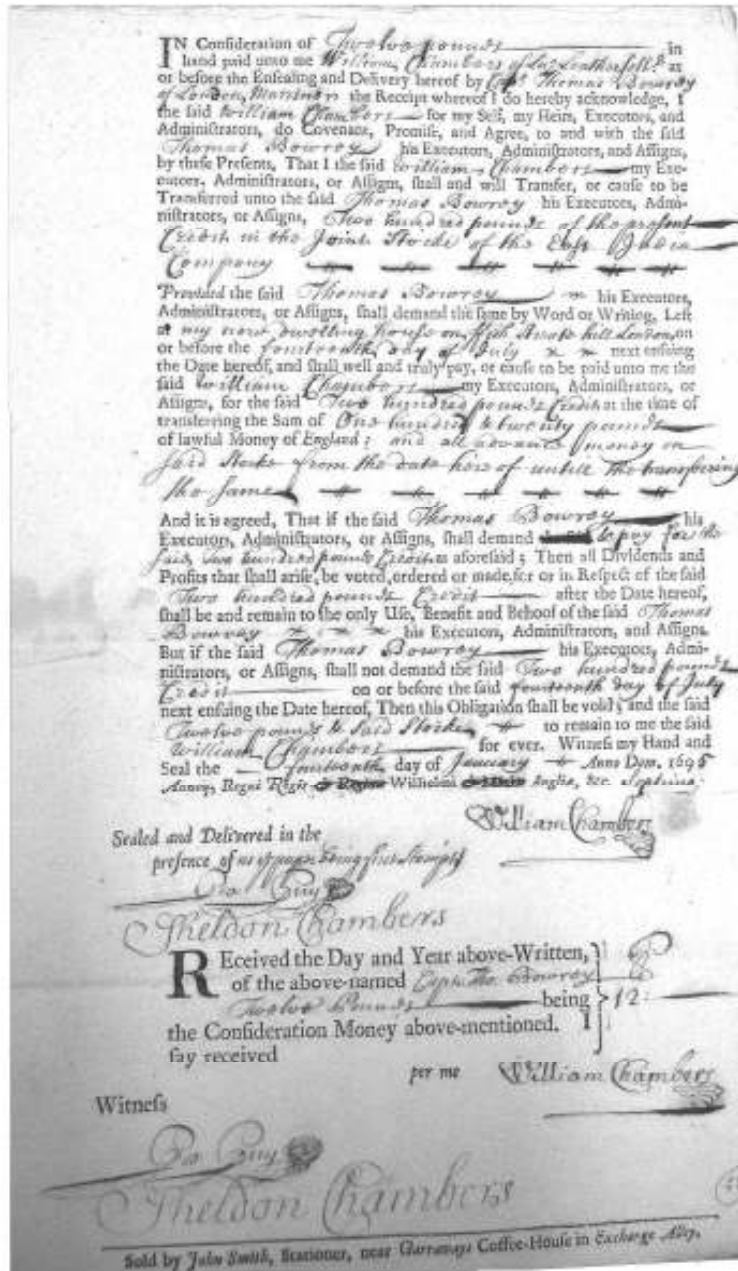 IN Consideration of Twelve pounds in
hand paid unto me William Chambers of Leatherseller as
or before the Ensealing and Delivery hereof by Capt. Thomas Bowrey
of London, Marriner the Receipt whereof I do hereby acknowledge, I
the said William Chambers for my Self, my Heirs, Executors, and
Administrators, do Covenant, Promise, and Agree, to and with the said
Thomas Bowrey his Executors, Administrators, and Assigns,
by these Presents, That I the said William Chambers my Exe-
cutors, Administrators, or Assigns, shall and will Transfer, or cause to be
Transferred unto the said Thomas Bowrey his Executors, Admi-
nistrators, or Assigns, Two hundred pounds of the present
Credit in the Joint Stocke of the East India
Company
Provided the said Thomas Bowrey his Executors,
Administrators, or Assigns, shall demand the same by Word or Writing, Left
at my now dwelling house on Fish Streete hill London, on
or before the fourteenth day of July next ensuing
the Date hereof, and shall well and truly pay, or cause to be paid unto me the
said William Chambers my Executors, Administrators, or
Assigns, for the said Two hundred pounds Credit at the time of
transferring the Sum of One hundred & twenty pounds
of lawful Money of England; and all advance money on
said Stocke from the date hereof untill the transfering
the same
And it is agreed, That if the said Thomas Bowrey his
Executors, Administrators, or Assigns, shall demand & pay for the
said Two hundred pounds Credit as aforesaid; Then all Dividends and
Profits that shall arise, be voted, ordered or made, for or in Respect of the said
Two hundred pounds Credit after the Date hereof,
shall be and remain to the only Use, Benefit and Behoof of the said Thomas
Bowrey his Executors, Administrators, and Assigns.
But if the said Thomas Bowrey his Executors, Admi-
nistrators, or Assigns, shall not demand the said Two hundred pounds
Credit on or before the said fourteenth day of July
next ensuing the Date hereof, Then this Obligation shall be void; and the said
Twelve pounds & said Stocke to remain to me the said
William Chambers for ever. Witness my Hand and
Seal the fourteenth day of January Anno Dom. 1695
Annoq; Regni Regis Wilhelmi Angliæ, &c. Septimo
William Chambers
Sealed and Delivered in the
presence of us
Guy
Sheldon Chambers
REceived the Day and Year above-Written,
of the above-named Captn. Tho. Bowrey
Twelve Pounds being 12
the Consideration Money above-mentioned. I
say received
per me William Chambers
Witness
Guy
Sheldon Chambers
Sold by John Smith, Stationer, near Garraways Coffee-House in Exchange Alley.